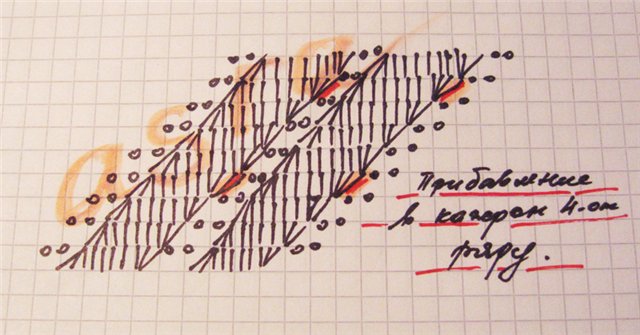 Прибавление
в каждом 4-ом
ряду.